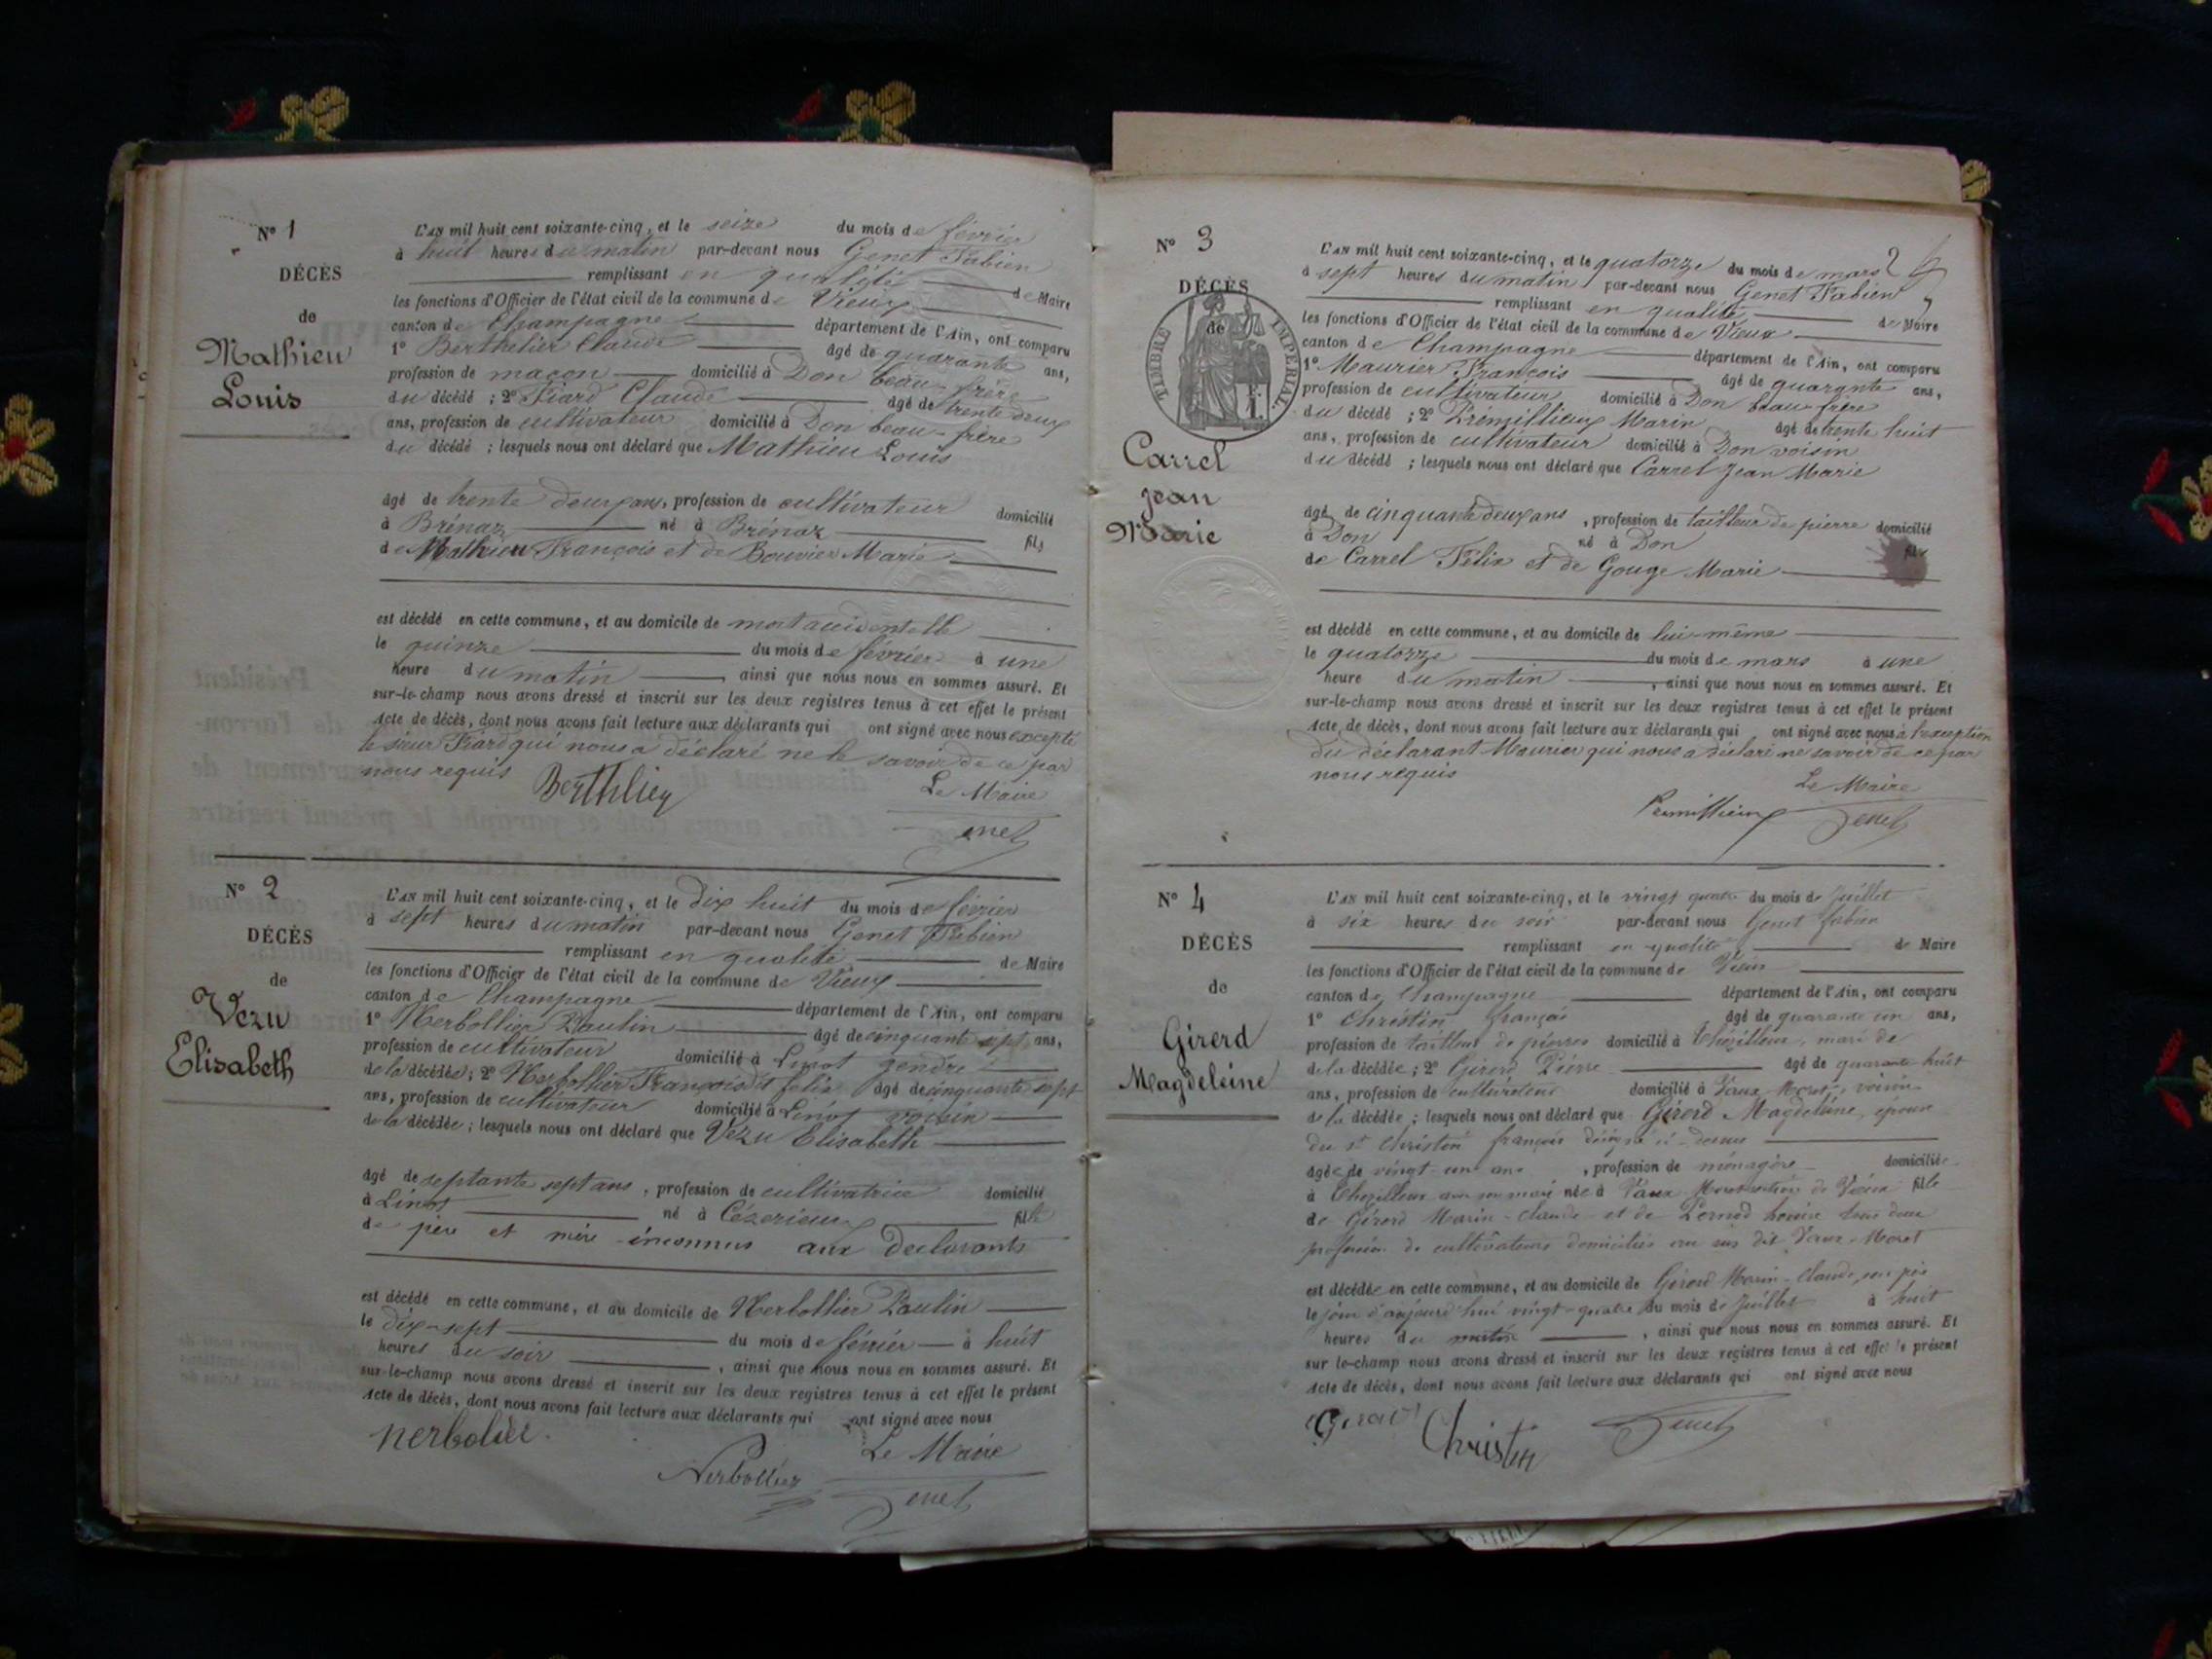 N° 1
DÉCÈS
de
Mathieu
Louis
L'AN mil huit cent soixante-cinq, et le seize du mois de février
à huit heures du matin par-devant nous Genet Fabien
remplissant en qualité de Maire
les fonctions d'Officier de l'état civil de la commune de Vieux
canton de Champagne département de l'Ain, ont comparu
1° Berthelier Claude âgé de quarante ans,
profession de maçon domicilié à Don beau-frère
du décédé ; 2° Fiard Claude âgé de trente deux
ans, profession de cultivateur domicilié à Don beau-frère
du décédé ; lesquels nous ont déclaré que Mathieu Louis
âgé de trente deux ans, profession de cultivateur domicilié
à Brénaz né à Brénaz fils
de Mathieu François et de Bouvier Marie
est décédé en cette commune, et au domicile de mort accidentelle
le quinze du mois de février à une
heure du matin , ainsi que nous nous en sommes assuré. Et
sur-le-champ nous avons dressé et inscrit sur les deux registres tenus à cet effet le présent
Acte de décès, dont nous avons fait lecture aux déclarants qui ont signé avec nous excepté
le sieur Fiard qui nous a déclaré ne le savoir de ce par
nous requis
Berthlier
Le Maire
Genet
N° 2
DÉCÈS
de
Vezu
Elisabeth
L'AN mil huit cent soixante-cinq, et le dix huit du mois de février
à sept heures du matin par-devant nous Genet Fabien
remplissant en qualité de Maire
les fonctions d'Officier de l'état civil de la commune de Vieux
canton de Champagne département de l'Ain, ont comparu
1° Nerbollier Paulin âgé de cinquante sept ans,
profession de cultivateur domicilié à Linod gendre
de la décédée ; 2° Nerbollier François dit félix âgé de cinquante sept
ans, profession de cultivateur domicilié à Linod voisin
de la décédée ; lesquels nous ont déclaré que Vezu Elisabeth
âgé de septante sept ans , profession de cultivatrice domicilié
à Linod né à Cézerieux fille
de père et mère inconnus aux declarants
est décédé en cette commune, et au domicile de Nerbollier Paulin
le dix-sept du mois de février à huit
heures du soir , ainsi que nous nous en sommes assuré. Et
sur-le-champ nous avons dressé et inscrit sur les deux registres tenus à cet effet le présent
Acte de décès, dont nous avons fait lecture aux déclarants qui ont signé avec nous
Le Maire
Nerbollier
Genet
N° 3
DÉCÈS
de
TIMBRE IMPÉRIAL
Carrel
Jean
Marie
2
L'AN mil huit cent soixante-cinq, et le quatorze du mois de mars
à sept heures du matin par-devant nous Genet Fabien
remplissant en qualité de Maire
les fonctions d'Officier de l'état civil de la commune de Vieux
canton de Champagne département de l'Ain, ont comparu
1° Maurier François âgé de quarante ans,
profession de cultivateur domicilié à Don beau frère
du décédé ; 2° Prémillieux Marin âgé de trente huit
ans, profession de cultivateur domicilié à Don voisin
du décédé ; lesquels nous ont déclaré que Carrel Jean Marie
âgé de cinquante deux ans , profession de tailleur de pierre domicilié
à Don né à Don fils
de Carrel Félix et de Gouge Marie
est décédé en cette commune, et au domicile de lui-même
le quatorze du mois de mars à une
heure du matin , ainsi que nous nous en sommes assuré. Et
sur-le-champ nous avons dressé et inscrit sur les deux registres tenus à cet effet le présent
Acte de décès, dont nous avons fait lecture aux déclarants qui ont signé avec nous à l'exception
du déclarant Maurier qui nous a déclaré ne savoir de ce par
nous requis
Le Maire
Genet
N° 4
DÉCÈS
de
Girerd
Magdeleine
L'AN mil huit cent soixante-cinq, et le vingt quatre du mois de Juillet
à six heures du soir par-devant nous Genet fabien
remplissant en qualité de Maire
les fonctions d'Officier de l'état civil de la commune de Vieux
canton de Champagne département de l'Ain, ont comparu
1° Christin françois âgé de quarante un ans,
profession de tailleur de pierres domicilié à mari de
de la décédée ; 2° Girerd Pierre âgé de quarante huit
ans, profession de cultivateur domicilié à Vaux Moret, voisin
de la décédée ; lesquels nous ont déclaré que Girerd Magdeleine, épouse
du Sr Christin françois désigné ci-dessus
âgée de vingt-un ans , profession de ménagère domiciliée
à avec son mari née à Vaux de Vieux fille
de Girerd Marin-Claude et de tous deux
profession de cultivateurs domiciliés au sus dit Vaux-Moret
est décédée en cette commune, et au domicile de Girerd Marin-Claude, son père
le jour d'aujourd'hui vingt-quatre du mois de Juillet à huit
heures du matin , ainsi que nous nous en sommes assuré. Et
sur-le-champ nous avons dressé et inscrit sur les deux registres tenus à cet effet le présent
Acte de décès, dont nous avons fait lecture aux déclarants qui ont signé avec nous
Christin
Genet